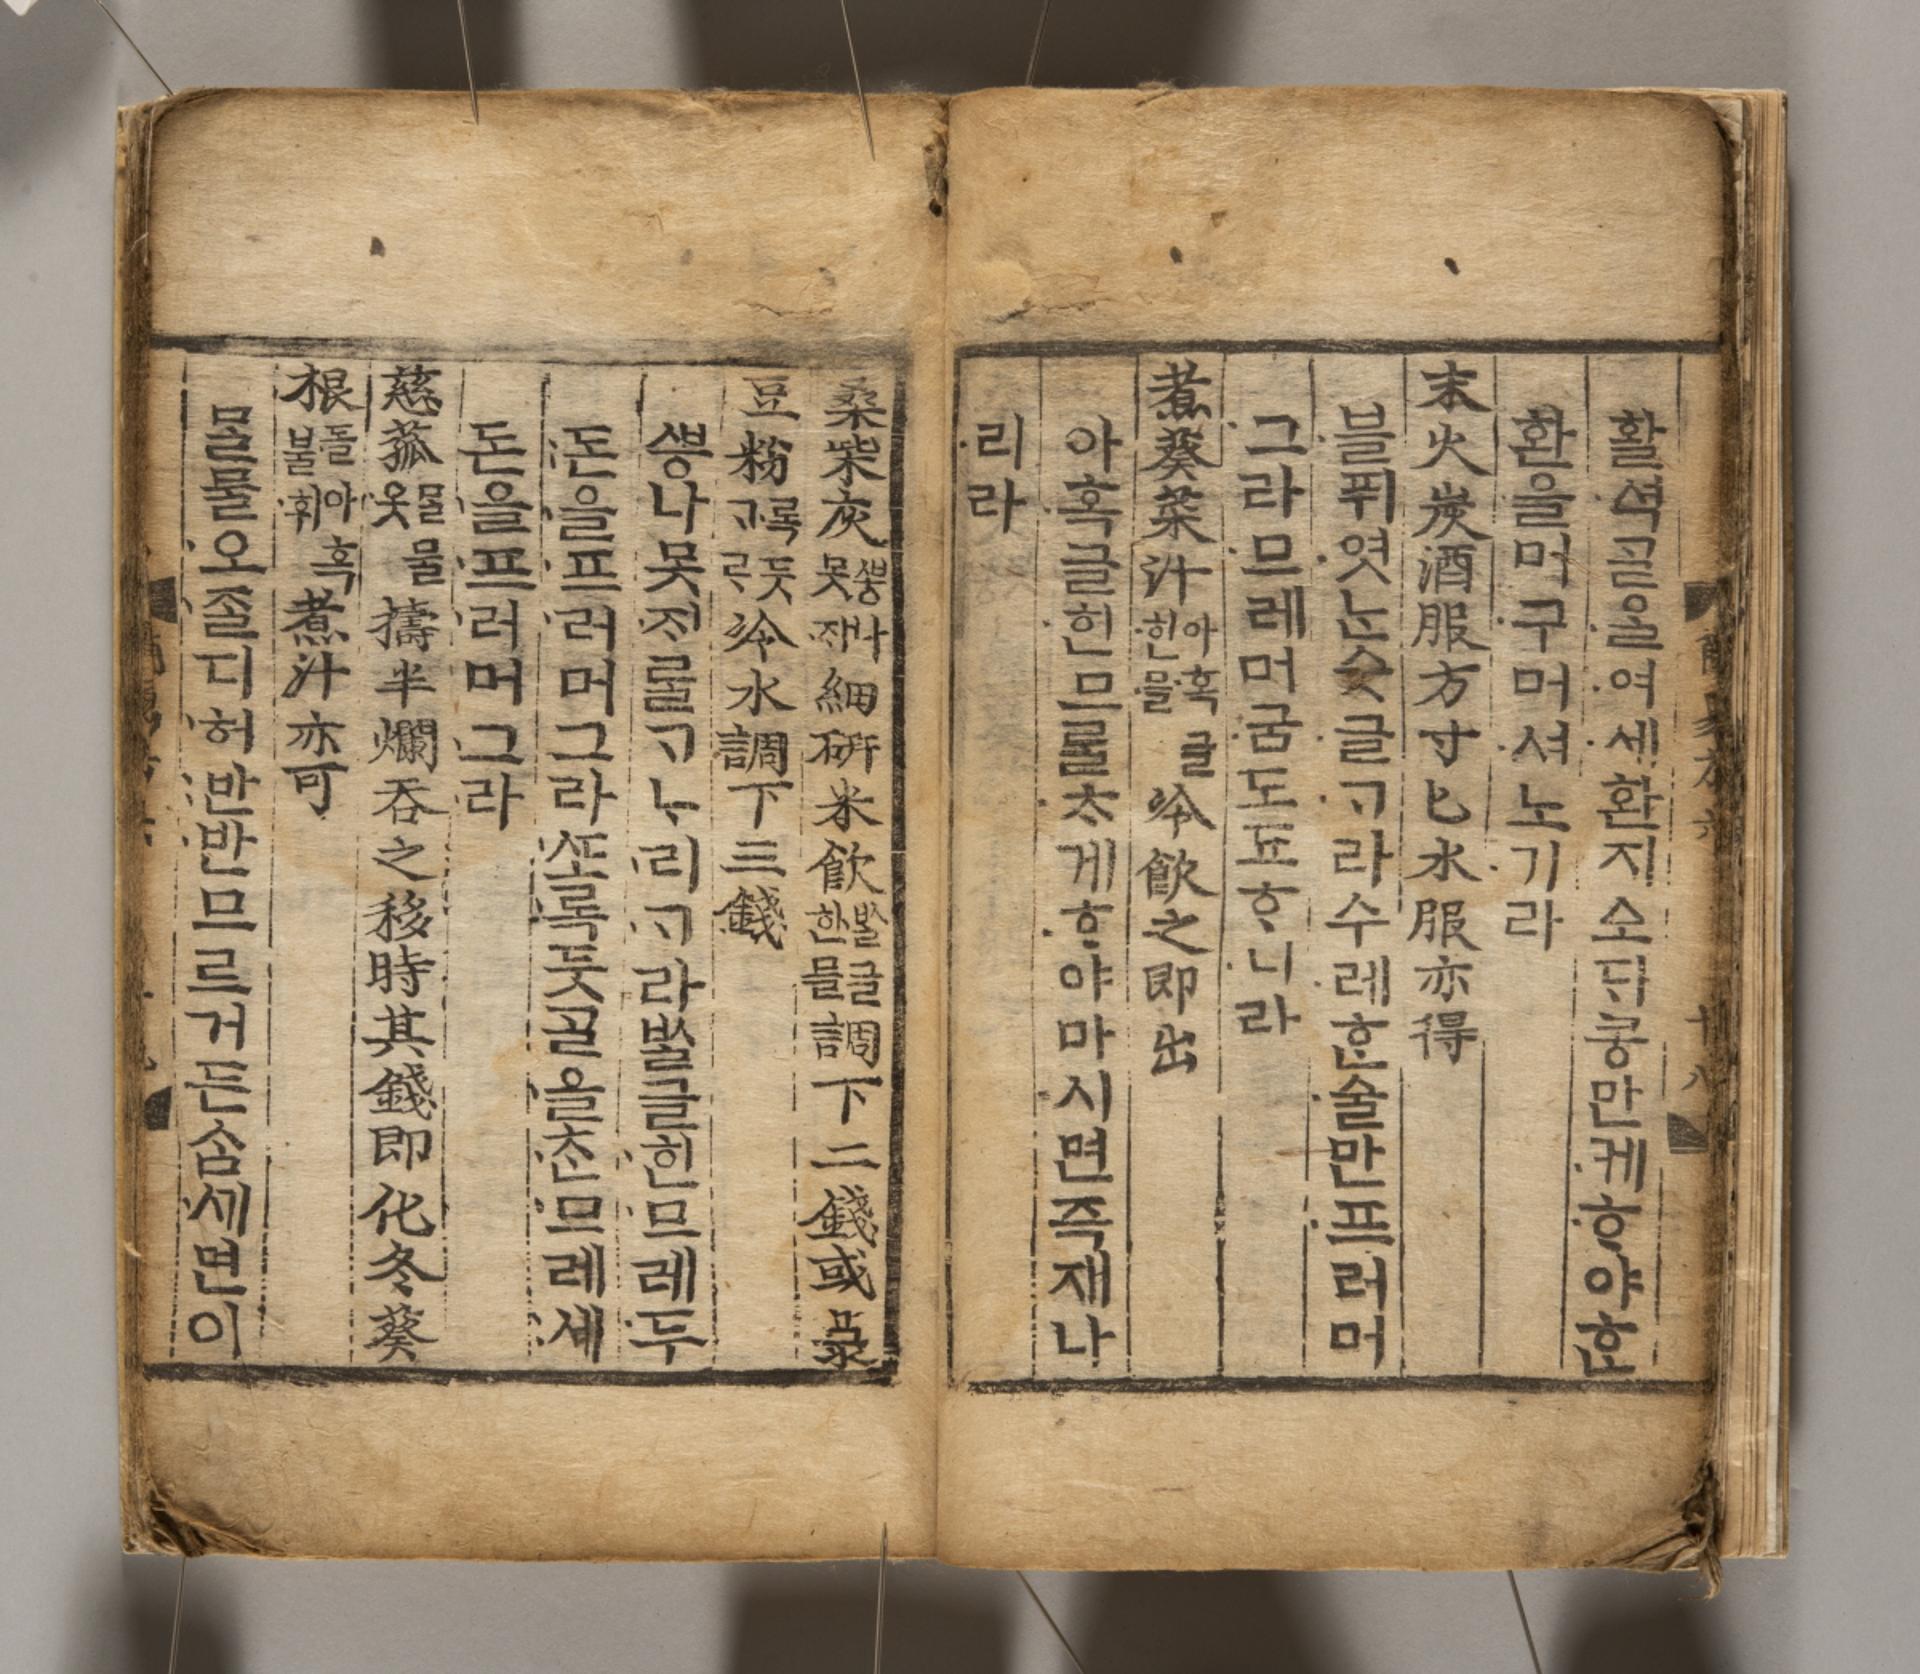 활셕ᄀᆞᆯᄋᆞᆯ여세환지소ᄃᆡ콩만케ᄒᆞ야ᄒᆞᆫ
환을머구머셔노기라
末火炭酒服方寸匕水服亦得
블퓌엿ᄂᆞᆫ숫글ᄀᆞ라수레ᄒᆞᆫ술만프러머
그라므레머굼도됴ᄒᆞ니라
煮葵菜汁아혹글힌믈冷飮之即出
아혹글힌므를ᄎᆞ게ᄒᆞ야마시면즉재나
리라
簡易方六 十八
桑柴灰ᄲᅩᆼ나못ᄌᆡ細硏米飮ᄡᆞᆯ글힌믈調下二錢或菉
豆粉록듯ᄀᆞᄅᆞ冷水調下三錢
ᄲᅩᆼ나못ᄌᆡᄅᆞᆯᄀᆞᄂᆞ리ᄀᆞ라ᄡᆞᆯ글힌므레두
돈을프러머그라ᄯᅩ록듯ᄀᆞᆯ을ᄎᆞᆫ므레세
돈을프러머그라
慈菰ᄆᆞᆯ물옷擣半爛呑之移時其錢即化冬葵
根돌아혹불휘煮汁亦可
ᄆᆞᆯ물오졸디허반반므르거든ᄉᆞᆷᄭᅵ면이